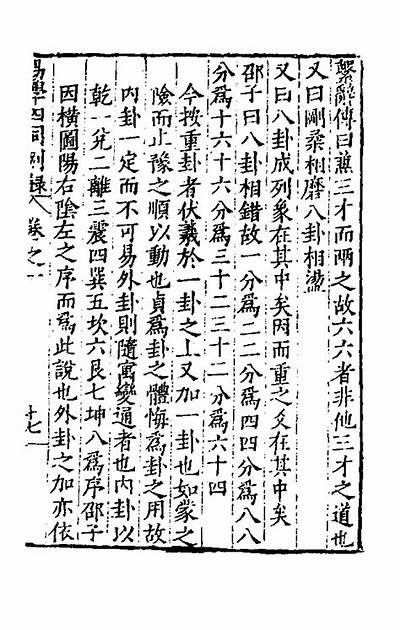 繫辭傳曰兼三才而兩之故六六者非他三才之道也
又曰剛柔相磨八卦相盪
又曰八卦成列象在其中矣因而重之爻在其中矣
邵子曰八卦相錯故一分爲二二分爲四四分爲八八
分爲十六十六分爲三十二三十二分爲六十四
今按重卦者伏羲於一卦之上又加一卦也如蒙之
險而止豫之順以動也貞爲卦之體悔爲卦之用故
內卦一定而不可易外卦則隨寓變通者也內卦以
乾一兌二離三震四巽五坎六艮七坤八爲序邵子
因橫圖陽右陰左之序而爲此說也外卦之加亦依
易學四同別録 卷之一 十七